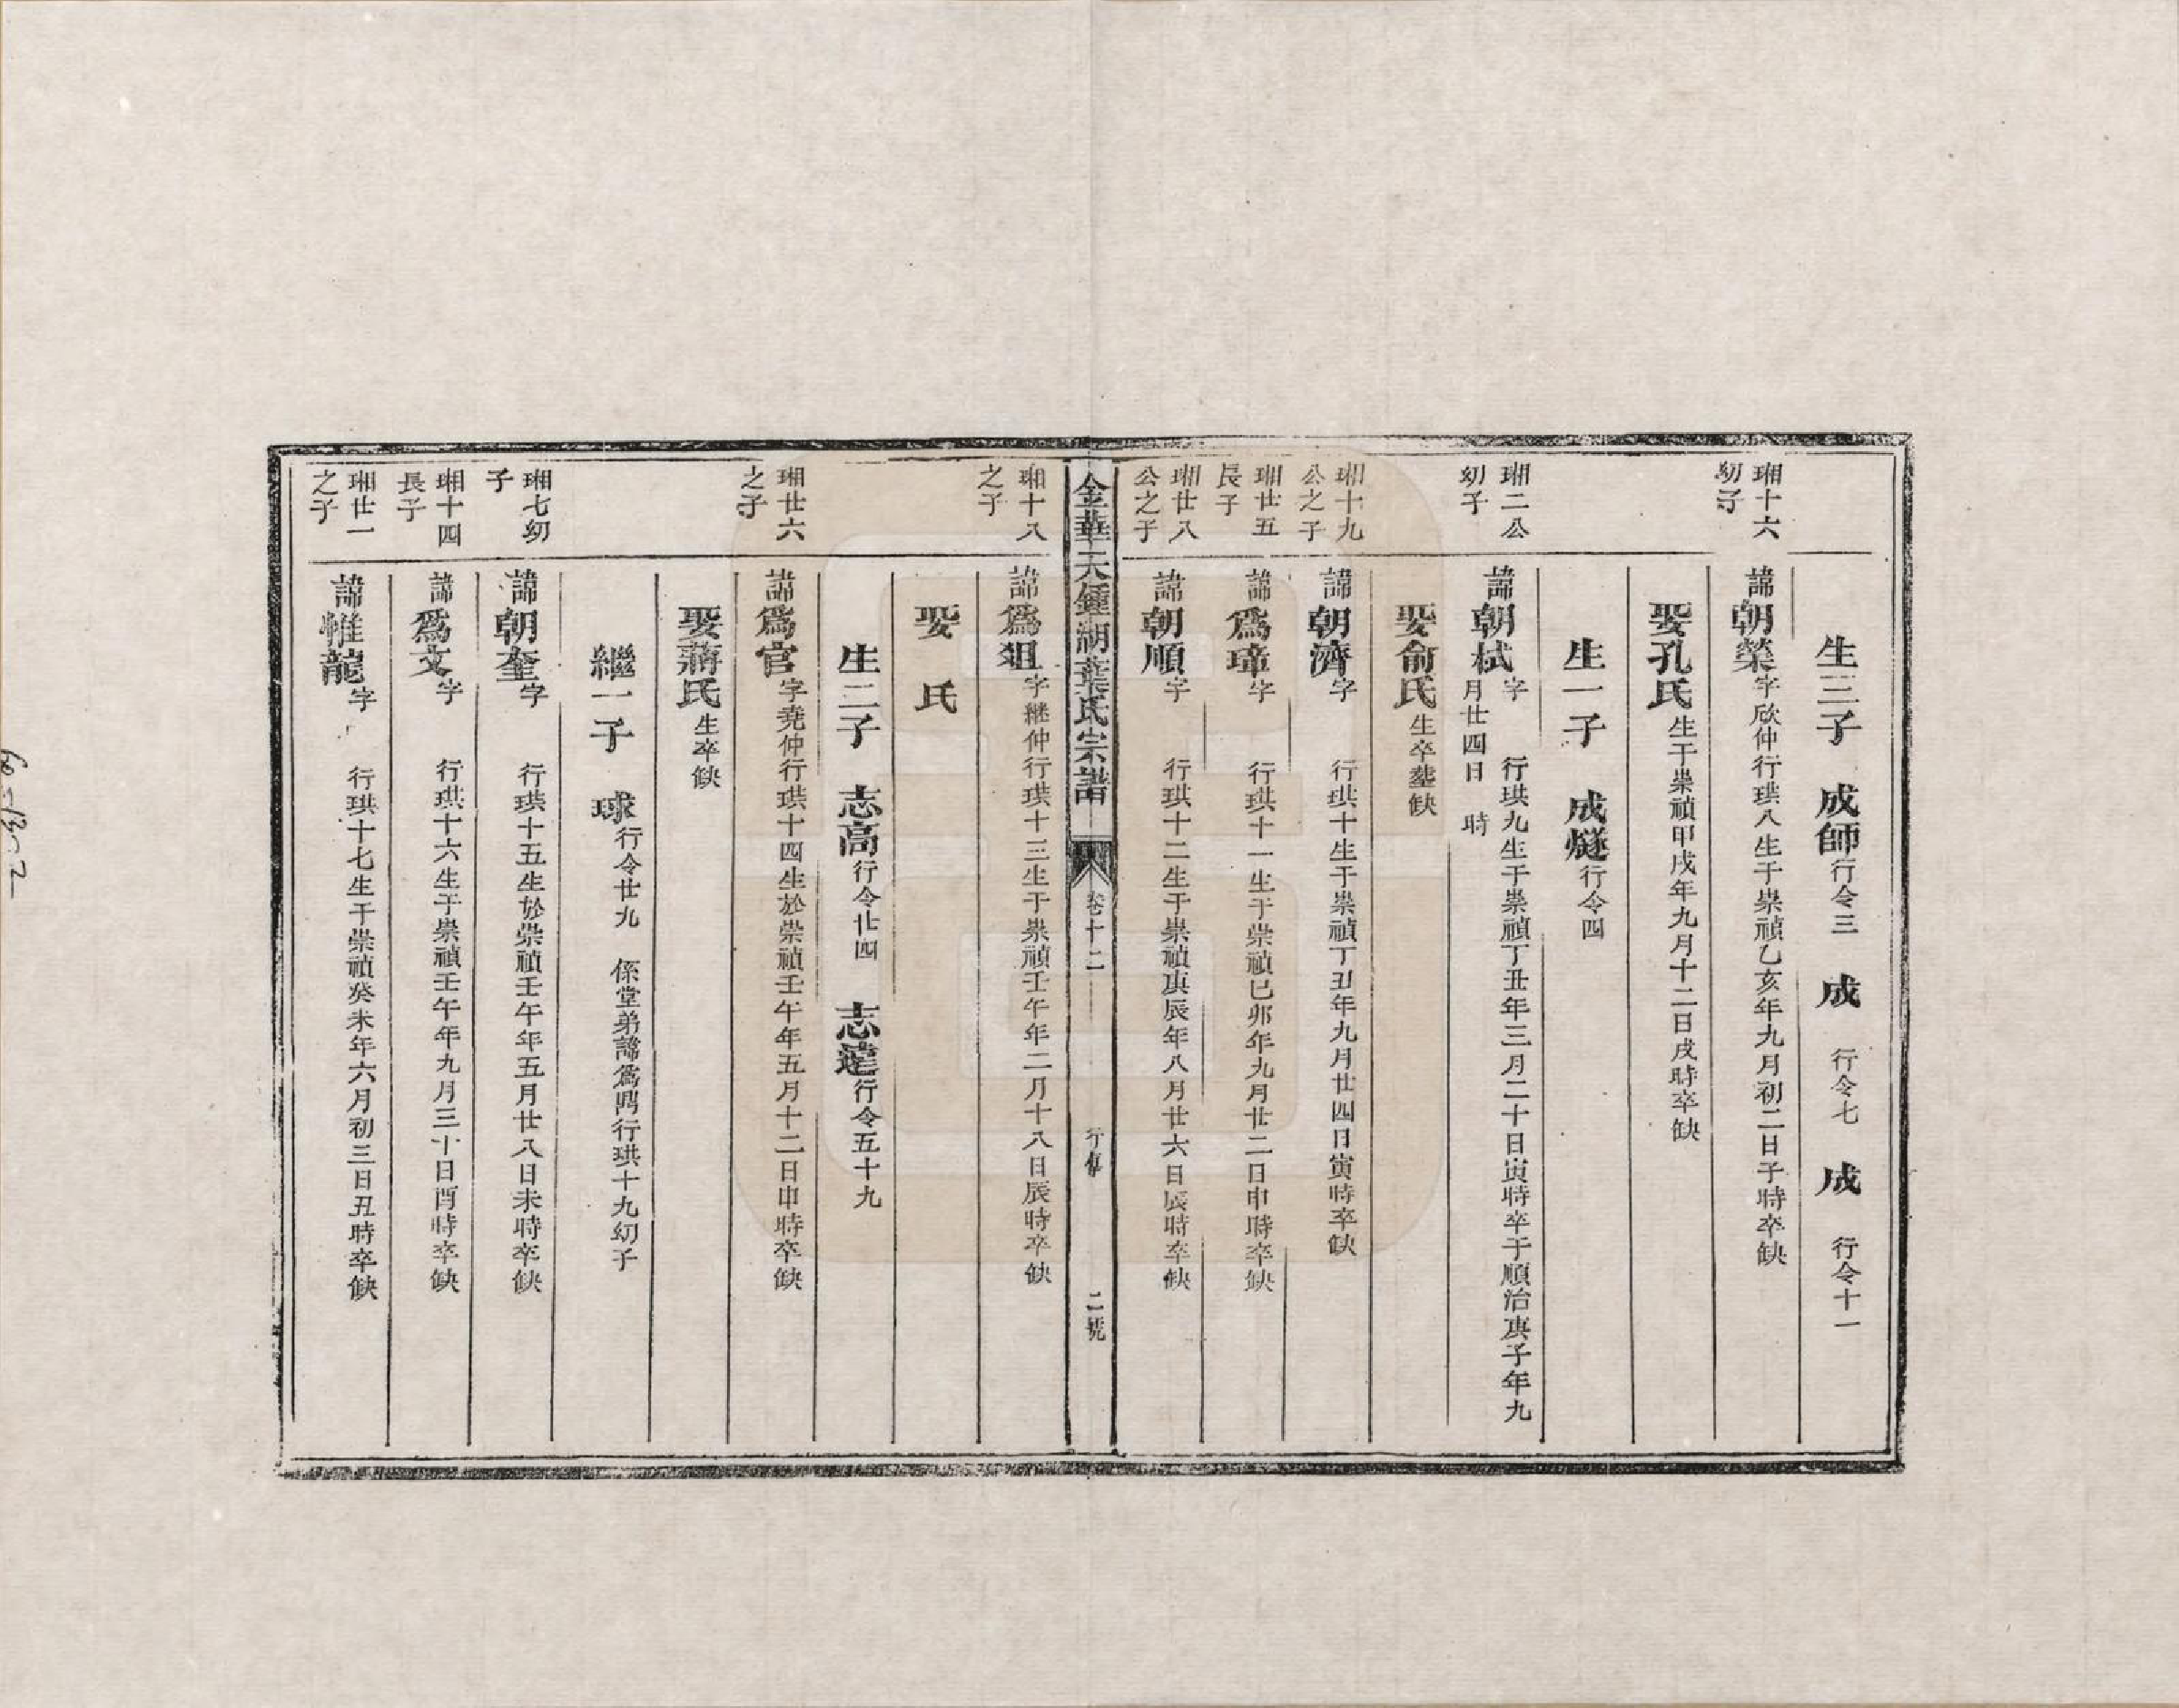 生三子　成師行令三　成　行令七　成　行令十一
瑚十六
幼子
諱朝榮字欣仲行珙八生于崇禎乙亥年九月初二日子時卒缺
娶孔氏生于崇禎甲戌年九月十二日戌時卒缺
生一子　成燧行令四
瑚二公
幼子
諱朝栻字　行珙九生于崇禎丁丑年三月二十日寅時卒于順治庚子年九
月廿四日　時
娶俞氏生卒塟缺
瑚十九
公之子
諱朝濟字　行珙十生于崇禎丁丑年九月廿四日寅時卒缺
瑚廿五
長子
諱爲璋字　行珙十一生于崇禎己卯年九月廿二日申時卒缺
瑚廿八
公之子
諱朝順字　行珙十二生于崇禎庚辰年八月廿六日辰時卒缺
金華天鍾湖葉氏宗譜　卷十二　行傳　二號
瑚十八
之子
諱爲俎字繼仲行珙十三生于崇禎壬午年二月十八日辰時卒缺
娶　氏
生二子　志高行令廿四　志達行令五十九
瑚廿六
之子
諱爲官字堯仲行珙十四生於崇禎壬午年五月十二日申時卒缺
娶蔣氏生卒缺
繼一子　球行令廿九　係堂弟諱爲鳴行珙十九幼子
瑚七幼
子
諱朝奎字　行珙十五生於崇禎壬午年五月廿八日未時卒缺
瑚十四
長子
諱爲文字　行珙十六生于崇禎壬午年九月三十日酉時卒缺
瑚廿一
之子
諱惟龍字　行珙十七生于崇禎癸未年六月初三日丑時卒缺